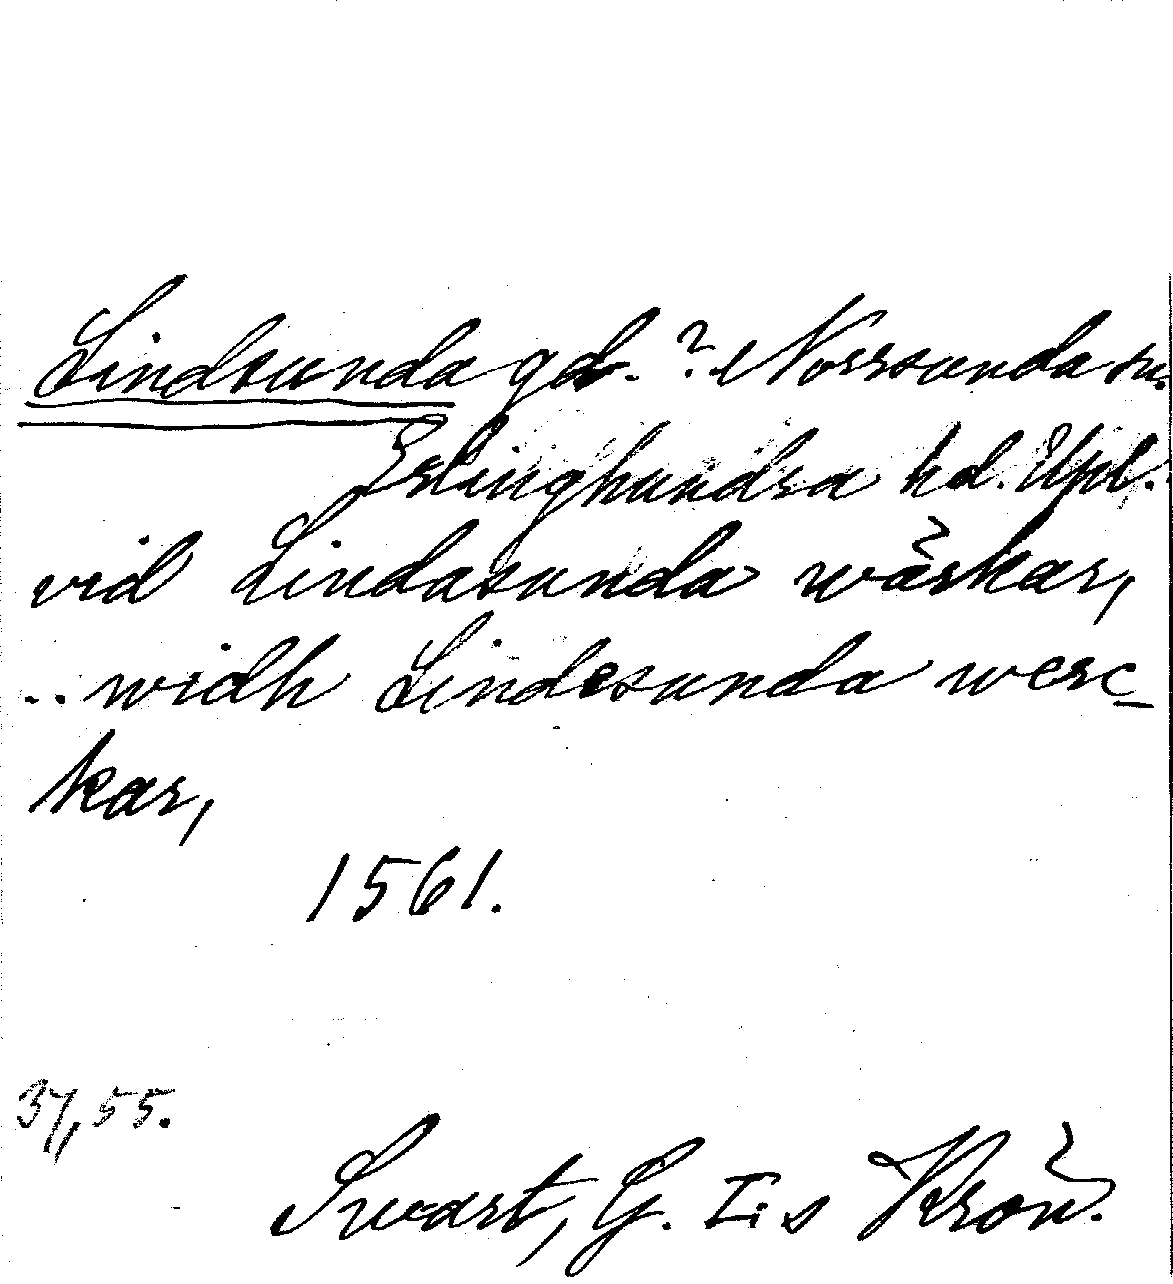 Lindsunda gd. ? Norrsunda sn.
Erlinghundra hd. Upl.
vid Lindasunda wärkar,
.. widh Lindesunda werc-
kar,
1561.
37, 55.
Swart, G. I:s Krön.